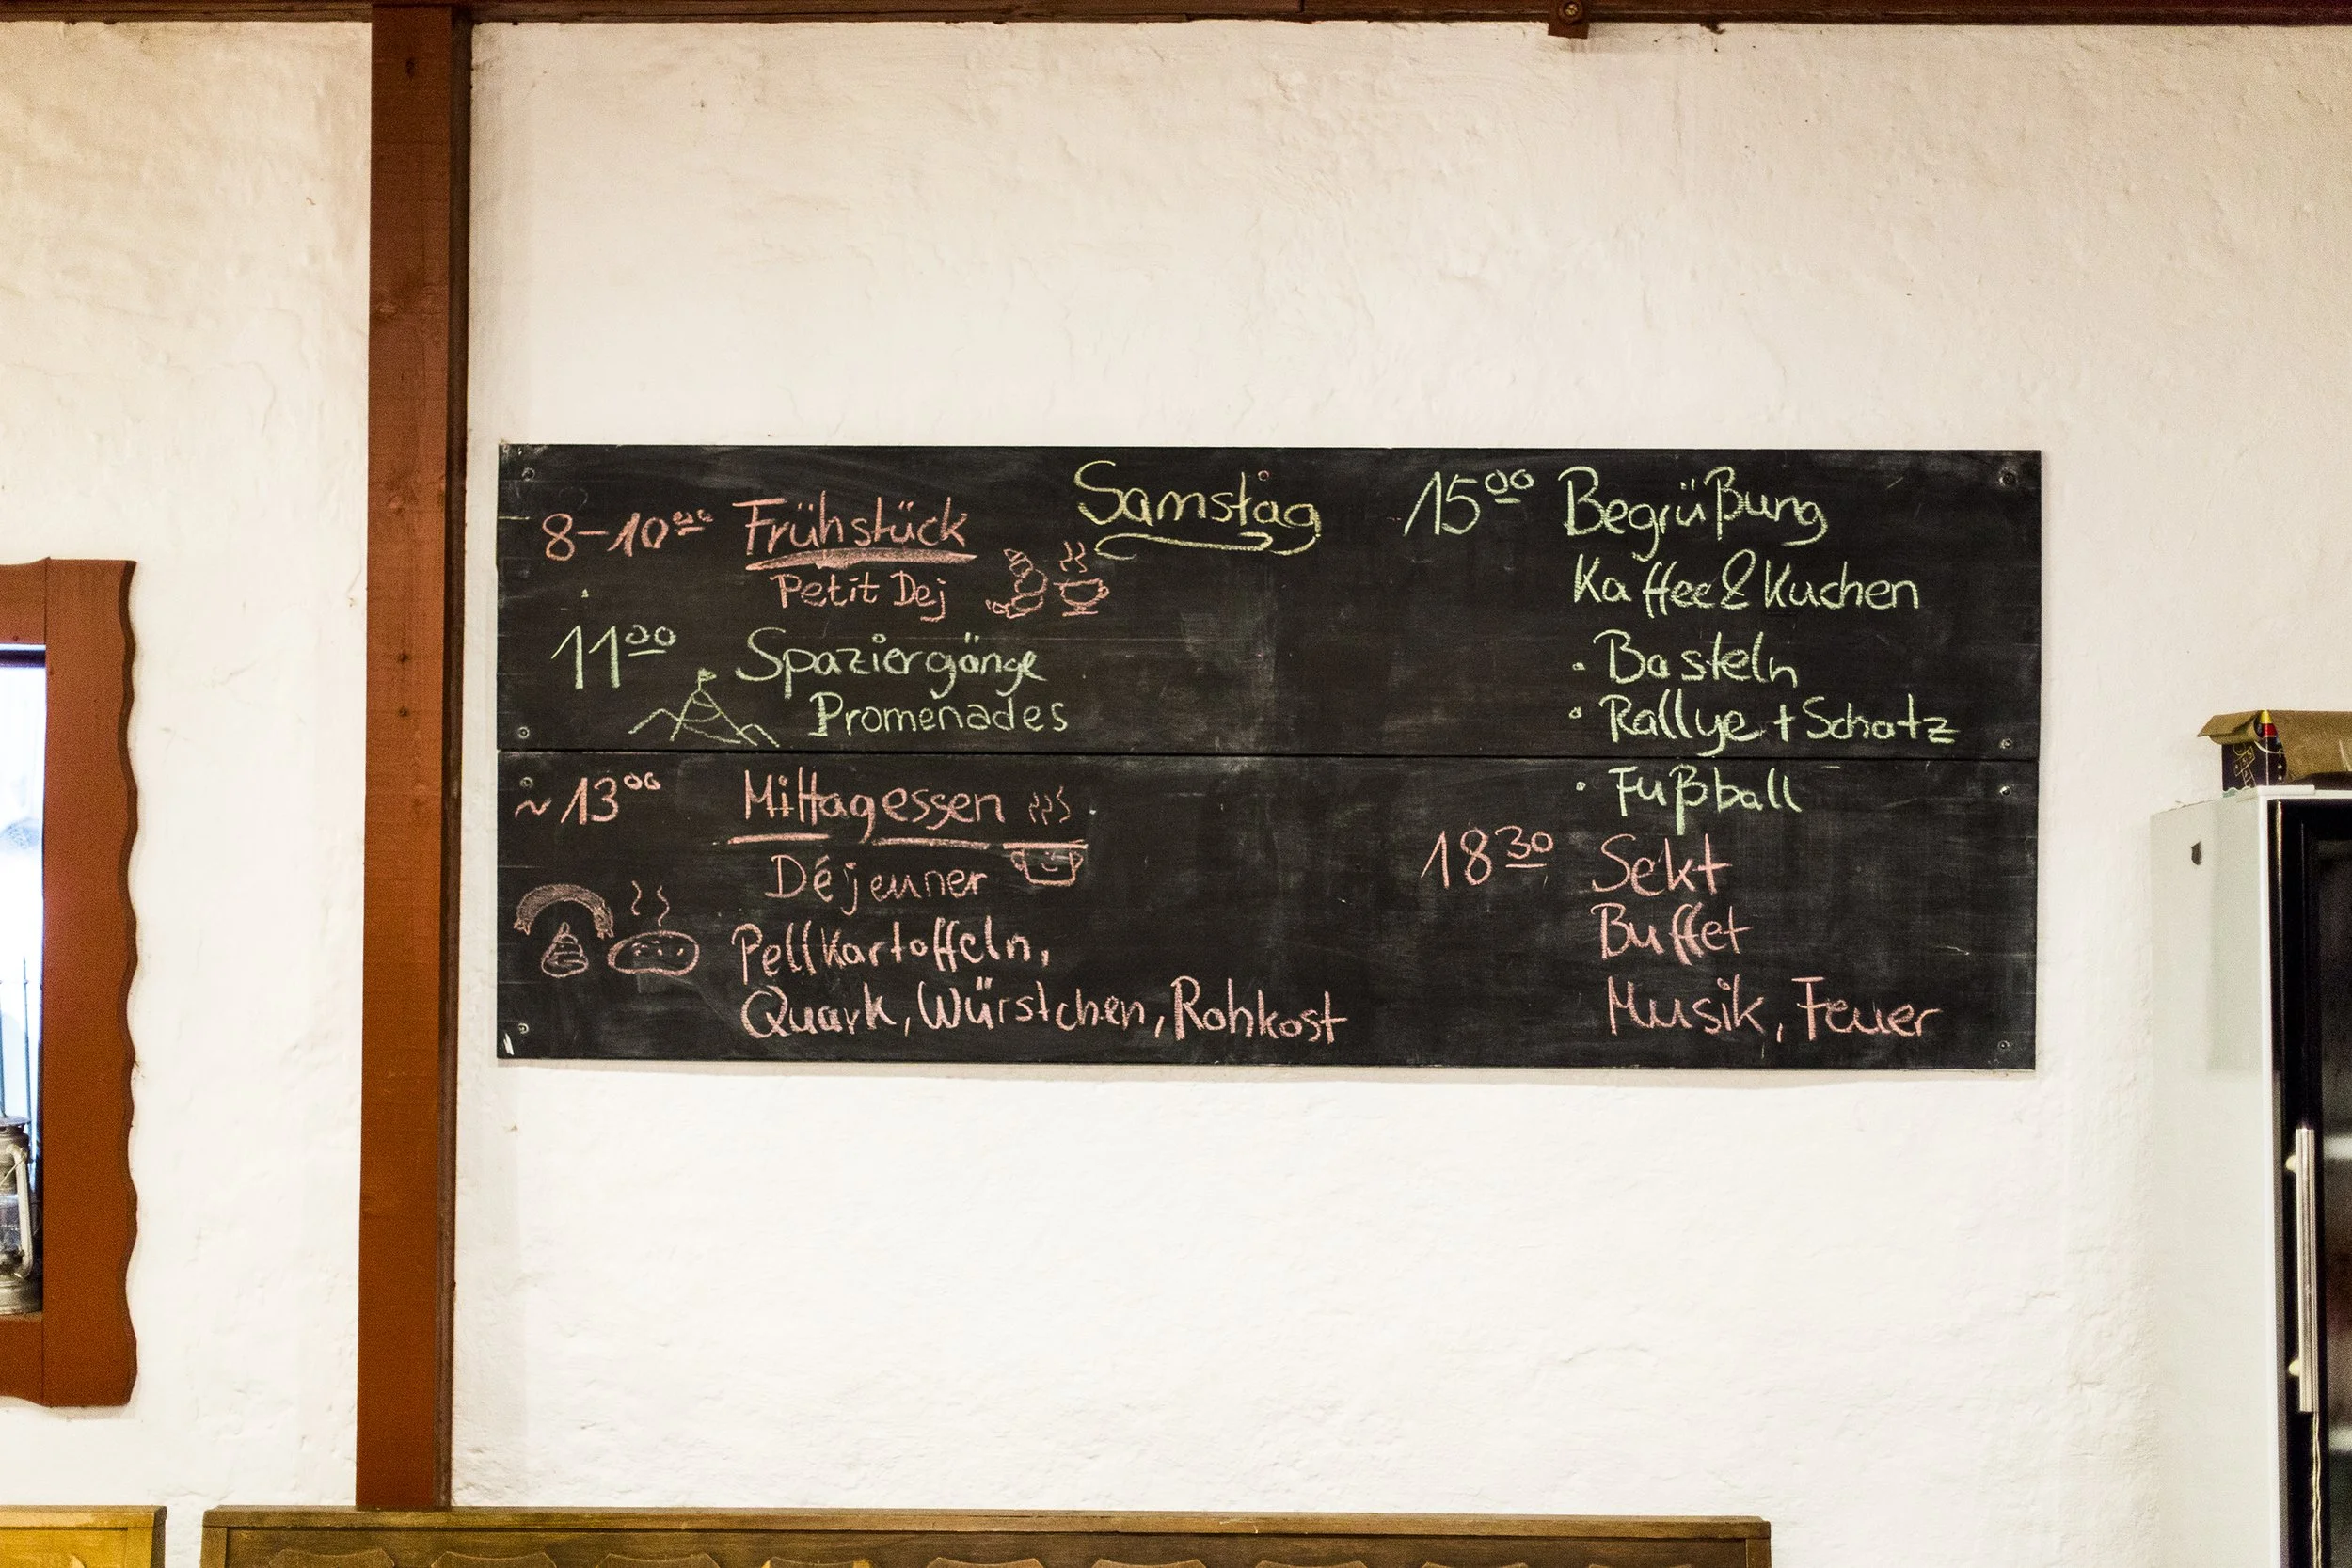 Samstag
8-10⁰⁰ Frühstück
Petit Dej
11⁰⁰ Spaziergänge
Promenades
~13⁰⁰ Mittagessen
Déjeuner
Pellkartoffeln,
Quark, Würstchen, Rohkost
15⁰⁰ Begrüßung
Kaffee & Kuchen
· Basteln
· Rallye + Schatz
· Fußball
18³⁰ Sekt
Buffet
Musik, Feuer